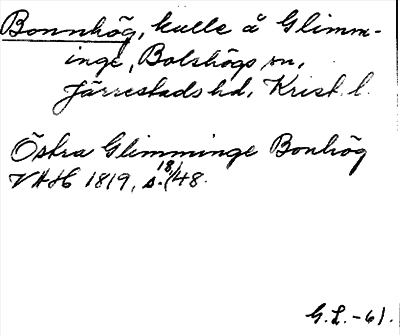 Bonnhög, kulle å Glimm-
inge, Bolshögs sn,
Järrestads hd, Krist. l.
Östra Glimminge Bonhög
VAH 1819, s. 18/48.
G.L.-61.